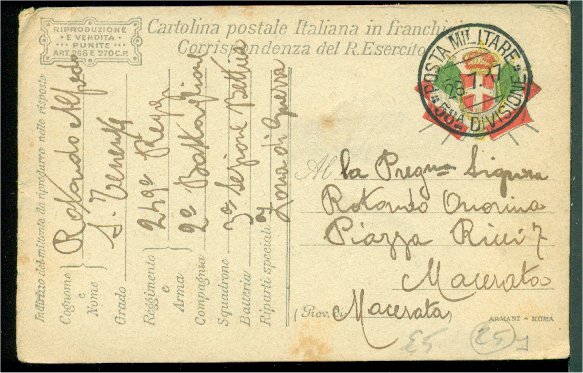 RIPRODUZIONE
E VENDITA
PUNITE
ART. 268 E 270 C.P.
Cartolina postale Italiana in franchigia
Corrispondenza del R. Esercito
POSTA MILITARE
* 59a DIVISIONE *
Indirizzo del mittente da riprodurre nelle risposte
Cognome e Nome Rotondo Alfredo
Grado S. Tenente
Reggimento e Arma
Compagnia 2o Battaglione
Squadrone
Batteria 3a Sezione
Riparti speciali Zona di Guerra
Al la Pregma Signora
Rotondo Onorina
Piazza Ricci 7
Macerata
(Prov. di Macerata)
ARMANI - ROMA
25